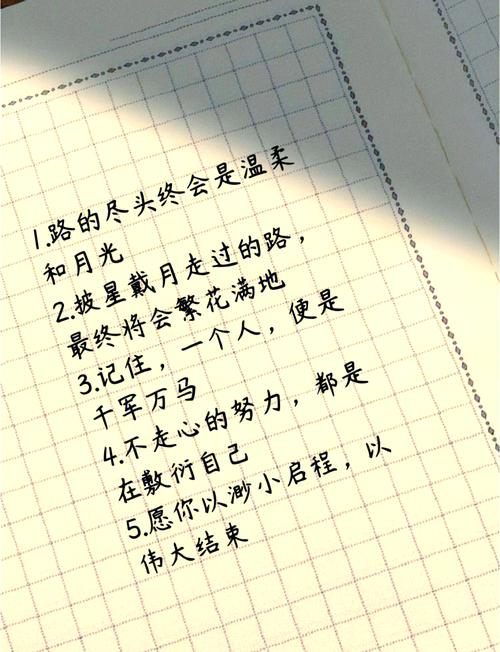 1.路的尽头终会是温柔
和月光
2.披星戴月走过的路，
最终将会繁花满地
3.记住，一个人，便是
千军万马
4.不走心的努力，都是
在敷衍自己
5.愿你以渺小启程，以
伟大结束